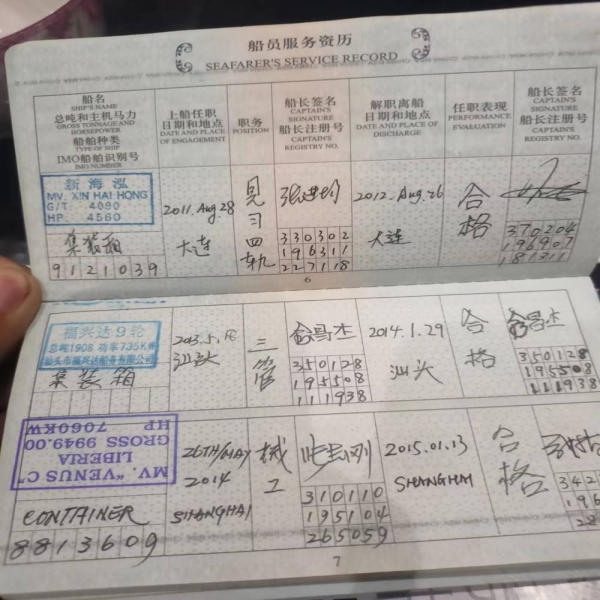 船员服务资历
SEAFARER'S SERVICE RECORD
船名
SHIP'S NAME
总吨和主机马力
GROSS TONNAGE AND HORSEPOWER
船舶种类
TYPE OF SHIP
IMO船舶识别号
IMO NUMBER
上船任职
日期和地点
DATE AND PLACE
OF ENGAGEMENT
职务
POSITION
船长签名
CAPTAIN'S
SIGNATURE
船长注册号
CAPTAIN'S
REGISTRY NO.
解职离船
日期和地点
DATE AND PLACE OF
DISCHARGE
任职表现
PERFORMANCE
EVALUATION
船长签名
CAPTAIN'S
SIGNATURE
船长注册号
CAPTAIN'S
REGISTRY NO.
新海泓
MV. XIN HAI HONG
G/T: 4090
HP: 4560
集装箱
9121039
2011.Aug.28
大连
见习四轨
330302
196311
227118
2012.Aug.26
大连
合格
370204
196907
6
福兴达9轮
总吨1908 功率735KW
汕头市福兴达船务有限公司
集装箱
汕头
三管
350128
195508
111938
2014.1.29
汕头
合格
350128
195508
111938
MV. "VENUS C"
LIBERIA
GROSS 9949.00
HP 7060KW
CONTAINER
8813609
26TH/MAY
2014
SHANGHAI
械工
310110
195104
265059
2015.01.13
SHANGHAI
合格
342
196
28
7